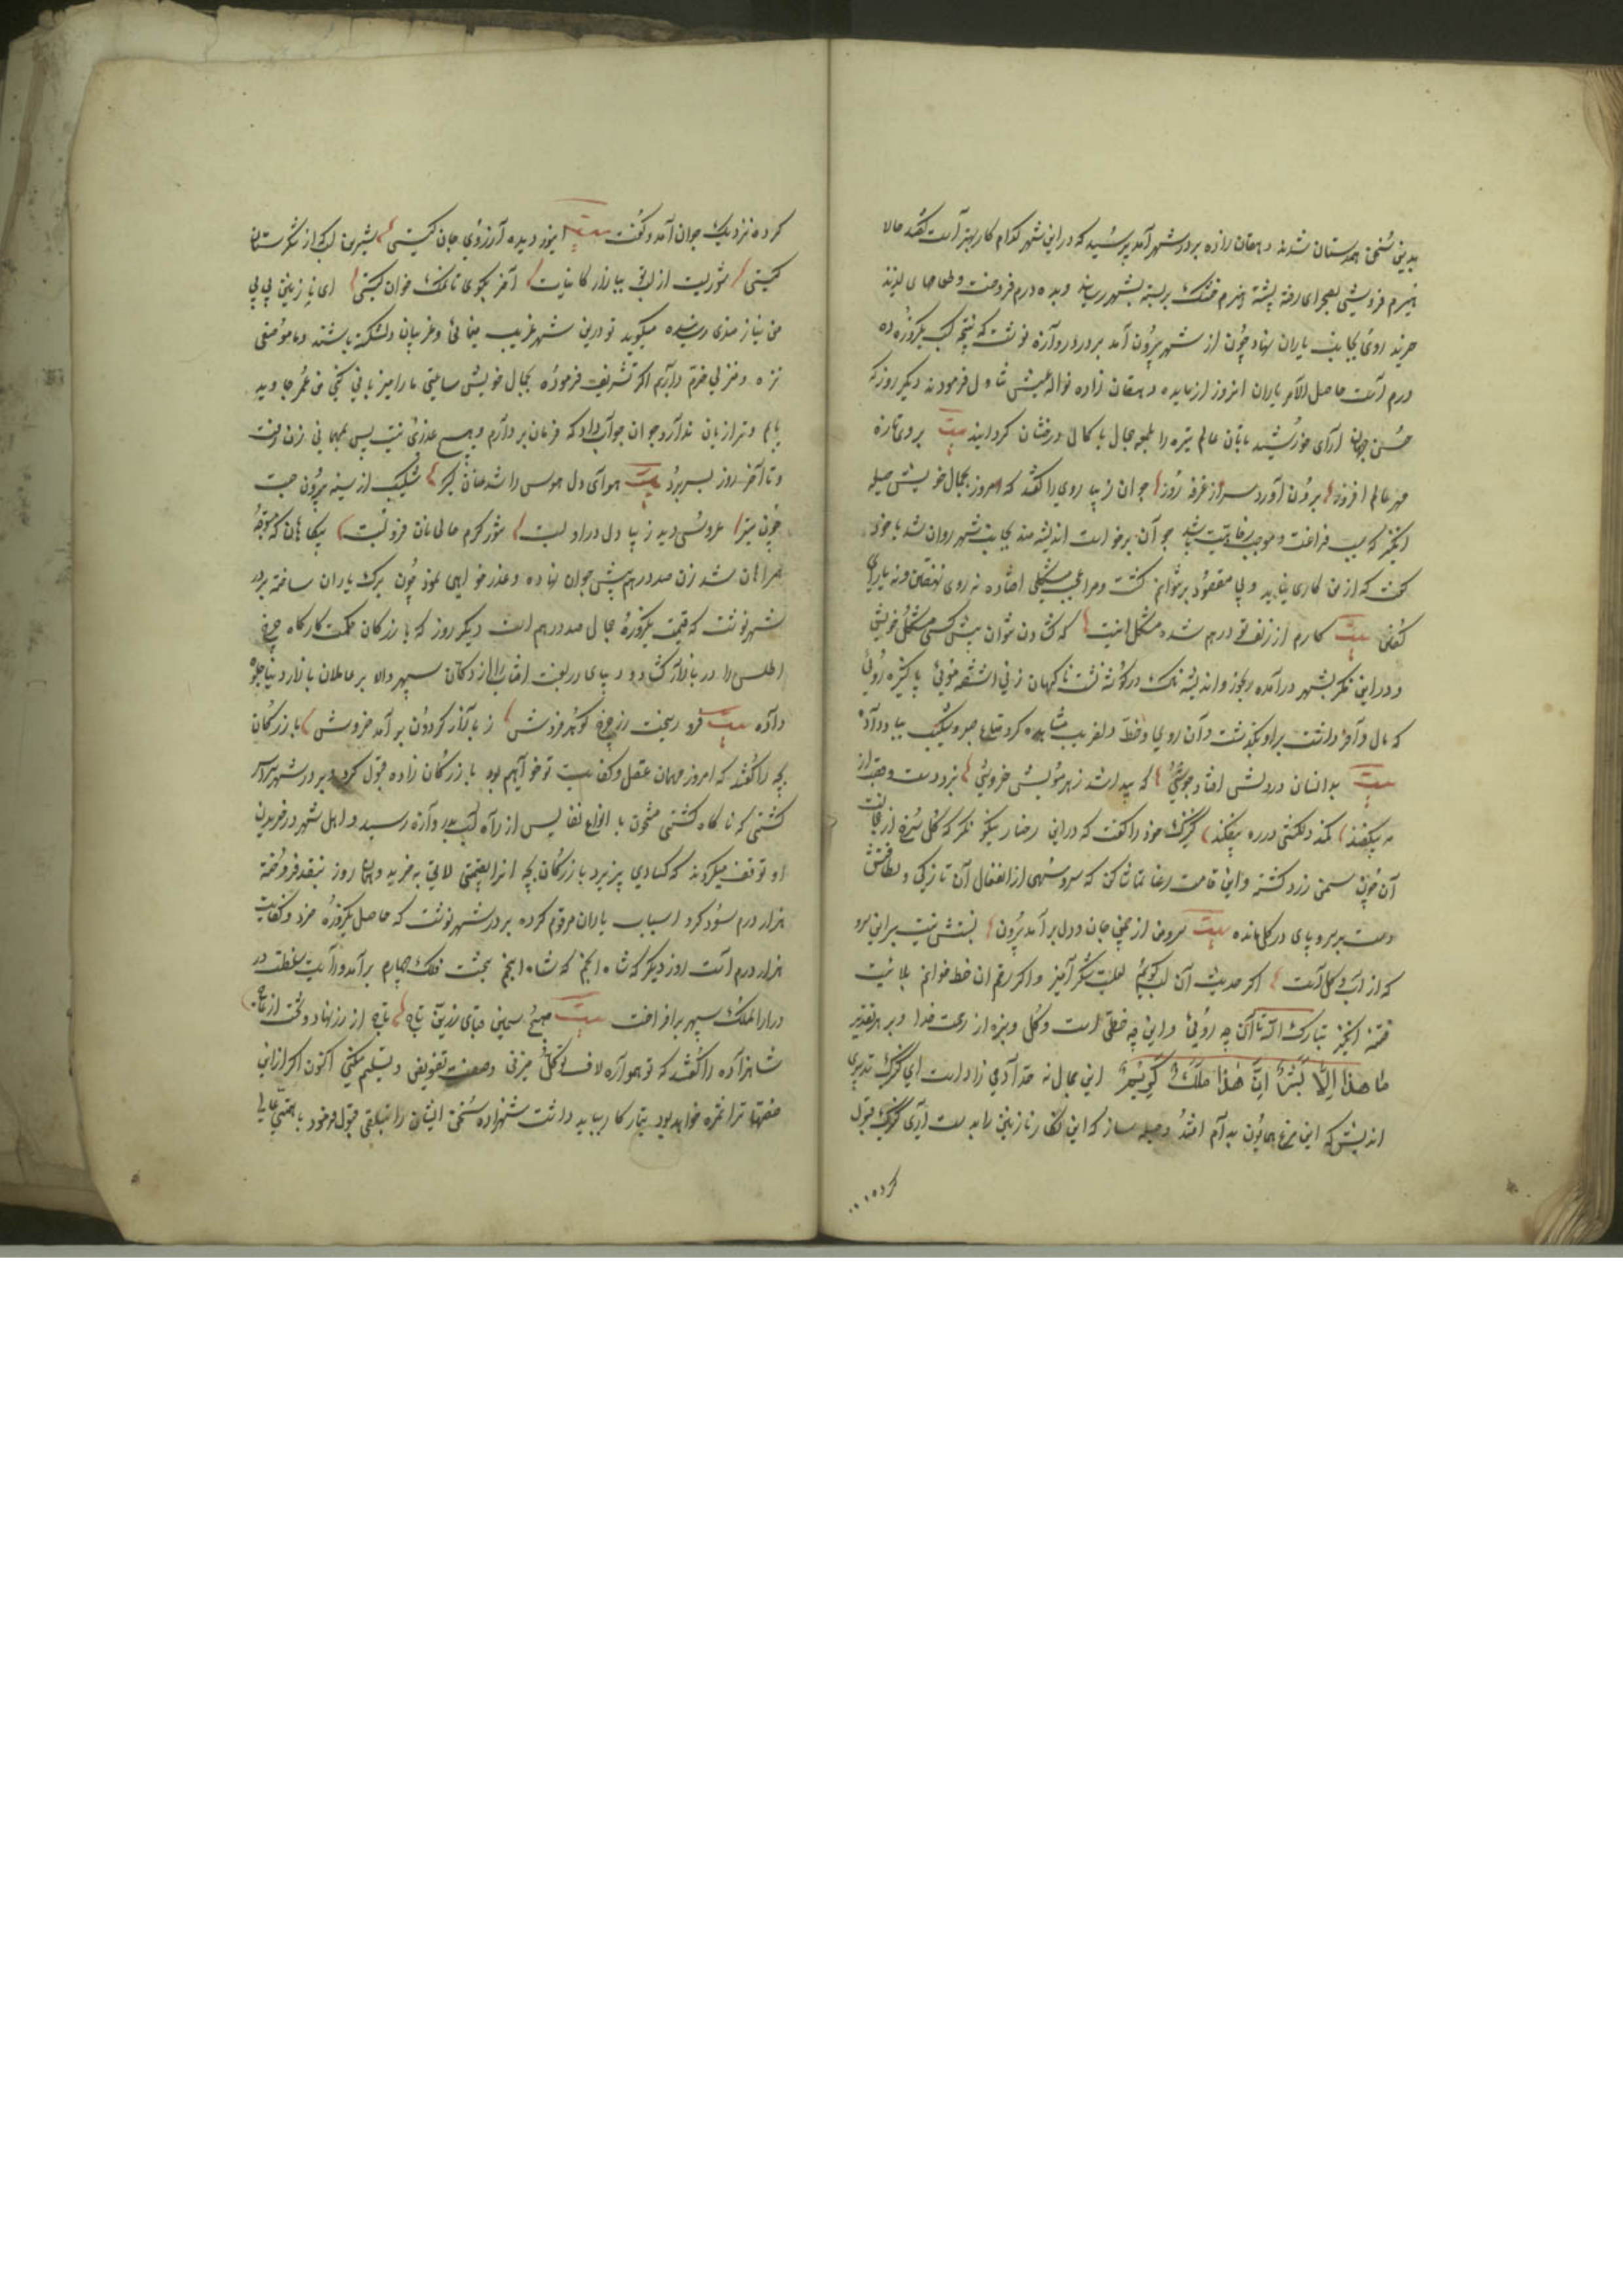 بدین سخن همدستان شدند دهقان زاده بر در شهر آمد پرسید که در این شهر کدام کار بهتر است گفتند حالا
هیزم فروشی بصحرای رفته پشتهٔ هیزم خشک بر بسته بشهر رسانید و بده درم فروخت و طعامهای لذیذ
خرید روی بجانب یاران نهاد چون از شهر بیرون آمد بر در دروازه نوشت که نتیجه کسب یکروزه ده
درم است حاصل الامر یاران امروز از مایده دهقان زاده نواله عیش تناول فرمودند دیگر روز که
حسن جهان آرای خورشید تابان عالم تیره را بلمعه جمال با کمال درخشان گردانید بیت بر وی تازه
مهر عالم افروز برون آورد سر از غرفه روز جوان زیبا روی را گفتند که امروز بجمال خویش حیله
انگیز که سبب فراغت و موجب رفاهیت باشد جوان برخواست اندیشه مند بجانب شهر روان شد با خود
گفت که از من کاری نیاید و بی مقصود بر نتوانم گشت و مرا عجب مشکلی افتاده نه روی نهفتن و نه یارای
گفتن بیت کارم از زلف تو درهم شده مشکل اینست که گشادن نتوان پیش کسی مشکل خویش
و در این فکر بشهر درآمده رنجور و اندیشه ناک در گوشه نشست ناگهان زنی آشفته خویی پاکیزه رویی
که مال وافر داشت بر او بگذشت و آن روی و خط دلفریب مشاهده کرد متاع صبر و شکیب بباد داد
بیت بدانسان در دلش افتاد جوشی که پیدا شد زهر مویش خروشی
میفکند کمند دلکش در ره میفکند کنیزک خود را گفت که در این رخسار نیکو نظر که گل سرخ از خجالت
آن چون سمن زرد گشته و این قامت رعنا تماشا کن که سرو سهی از انفعال آن نازکی و لطافتش
دست بر سر و پای در گل مانده بیت سروش از چمن جان و دل بر آمد بیرون نسبتش نیست بر این سرو
که از آب و گل است اگر حدیث آن لب گویم لعلیست شکر آمیز و اگر رقم آن خط خوانم بلائیست
فتنه انگیز تبارک الله آن چه روئی و این چه خطی است و گل و بنزه از رحمت خدا و بر هر تقدیر
ما هذا الا بشر ان هذا ملک کریم این جمال نه حد آدمی زاد است ای کنیزک تدبیری
اندیش که این مرغ همایون بدام افتد و حیله ساز که این نگار نازنین را بدست آری کنیزک قبول
کرده
کرده نزدیک جوان آمد و گفت بیت ای نور دیده آرزوی جان کیستی شیرین لب از شکرستان
کیستی شوریست از لبت ببازار کاینات آخر بگوی تا نمک خوان کیستی ای نازنین بی بی
من نیازمندی رسانیده میگوید تو درین شهر غریب مینمائی و غریبان دلشکسته باشند و ما موضعی
نزه و منزلی خرم داریم اگر تشریف فرموده بجمال خویش ساعتی ما را میزبانی کنی من عمر جاوید
یابم و ترا زیان ندارد جوان جواب داد که فرمان بردارم و هیچ عذری نیست پس بمهمانی زن رفت
و تا آخر روز بسر برد بیت هوای دل هوس را شد عنان گیر شکیب از سینه بیرون جست
چون تیر عروسی دید زیبا دل دراو بست
همراهان شد زن صد درهم پیش جوان نهاده و عذر خواهی نمود چون برگ یاران ساخته بر در
شهر نوشت که قیمت یکروزه جمال صد درهم است دیگر روز که بازرگان حکمت کارگاه چرخ
اطلس را در بازار گشاد و دیبای زربفت آفتاب را از دکان سپهر والا بر عاملان بازار دنیا جلوه
داده بیت فرو ریخت زر چرخ گوهر فروش ز بازار گردون بر آمد خروش بازرگان
بچه را گفتند که امروز مهمان عقل و کفایت تو خواهیم بود بازرگان زاده قبول کرد و بر در شهر
کشتی که ناگاه کشتی مشحون با انواع نفایس از راه آب بدروازه رسید و اهل شهر در خریدن
او توقف میکردند که کسادی پذیرد بازرگان بچه انرا بقیمتی لایق بخرید و همان روز بنقد فروخته
هزار درم سود کرد اسباب یاران مرقوم کرده بر در شهر نوشت که حاصل یکروزه خرد و کفایت
هزار درم است روز دیگر که شاه انجم که شاه انجم بتخت فلک چهارم برآمد و رایت سلطنت در
دارالملک سپهر برافراخت بیت صبح سیمین قبای زرین تاج تاج از زر نهاد و تخت از عاج
شاهزاده را گفتند که تو همواره لاف توکل میزنی و صفت تفویض و تسلیم میکنی اکنون اگر از این
صفتها ترا ثمره خواهد بود تیمار کار ما بباید داشت شهزاده سخن ایشان را بتلقی قبول فرمود با همتی عالی